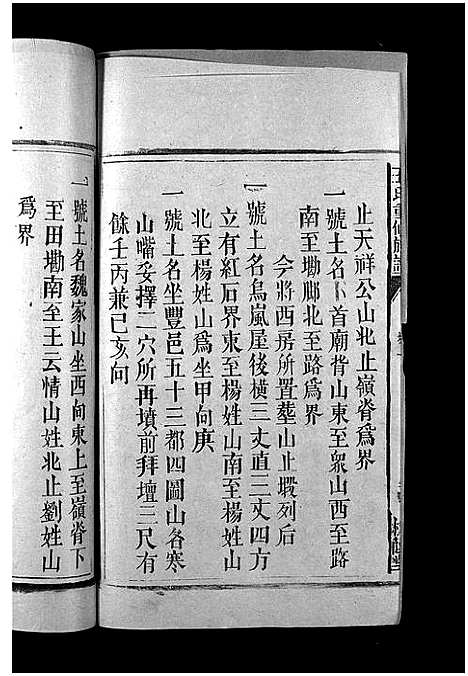 止天祥公山北止嶺脊爲界
一號土名卜首廟背山東至衆山西至路
南至墈脚北至路爲界
今將西房所置塟山止塅列后
一號土名烏嵐屋後橫三丈直二丈四方
立有紅石界東至楊姓山南至楊姓山
北至楊姓山爲坐甲向庚
一號土名坐豐邑五十三都四圖山名寒
山嘴妥擇二穴所再墳前拜壇三尺有
餘壬丙兼巳亥向
一號土名魏家山坐西向東上至嶺脊下
至田墈南至王云情山姓北止劉姓山
爲界